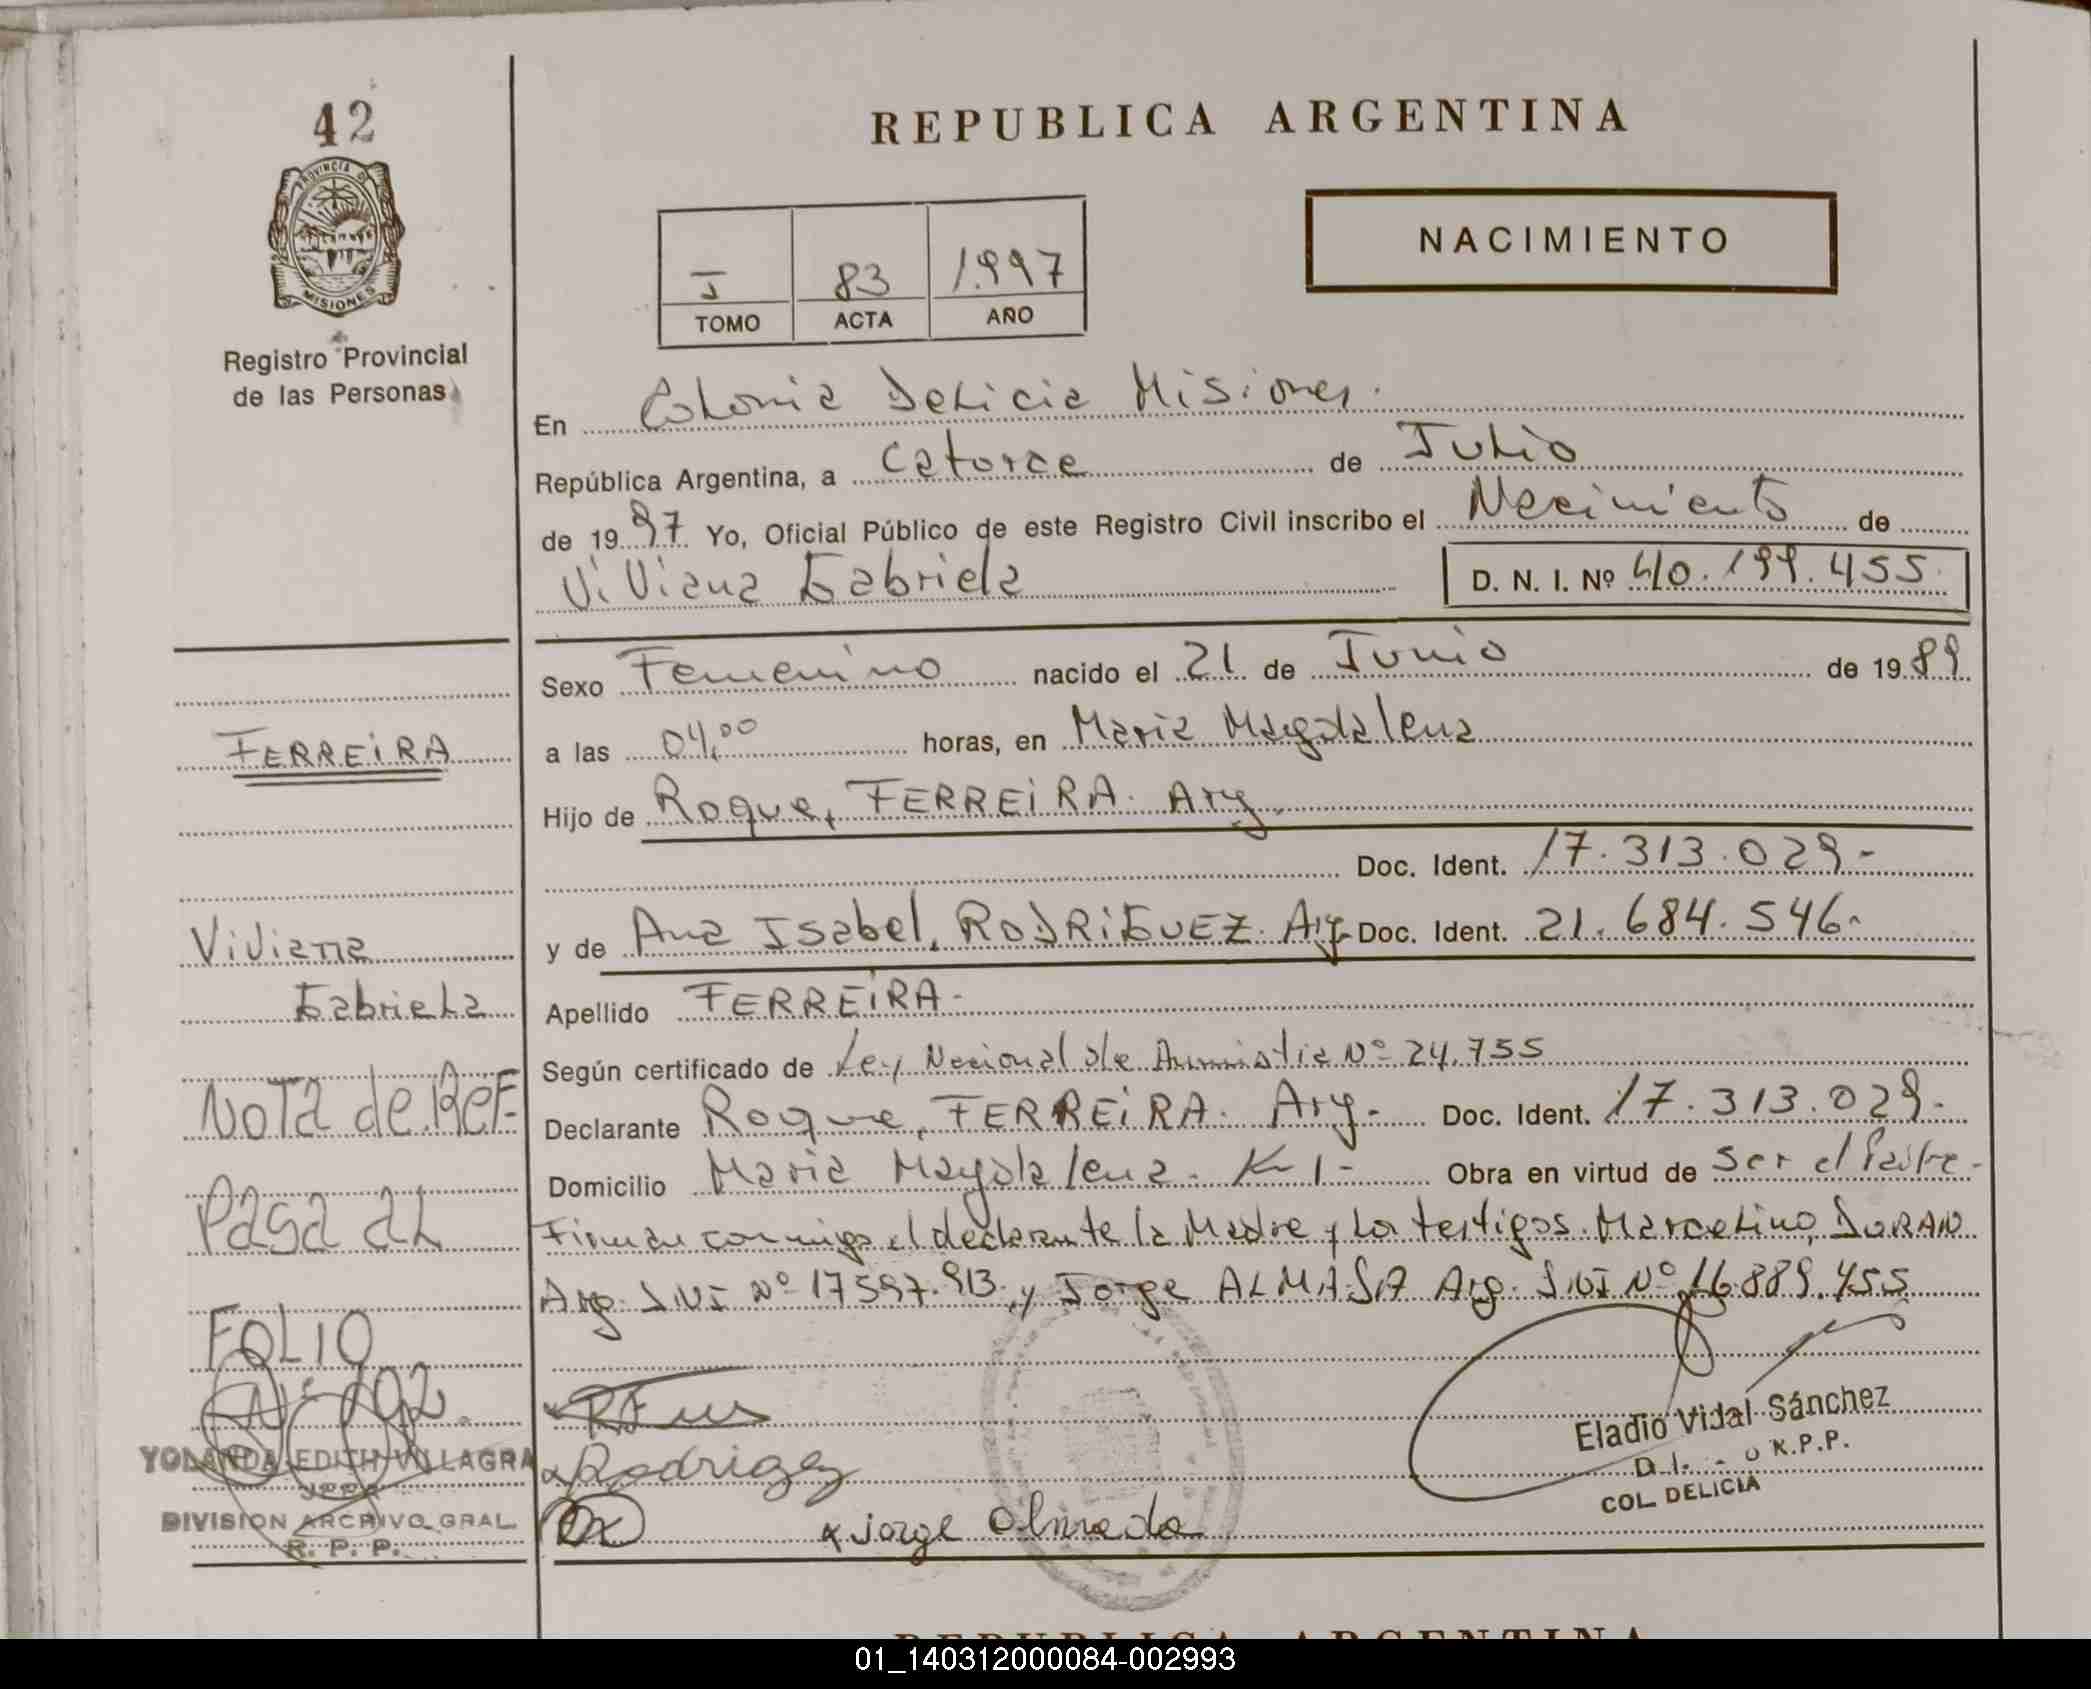 42
PROVINCIA DE
MISIONES
Registro Provincial
de las Personas
REPUBLICA ARGENTINA
NACIMIENTO
I 83 1.997
TOMO ACTA AÑO
En Colonia Delicia Misiones.
República Argentina, a Catorce de Julio
de 1997 Yo, Oficial Público de este Registro Civil inscribo el Nacimiento de
Viviana Gabriela D. N. I. Nº 40.199.455
Sexo Femenino nacido el 21 de Junio de 1989
a las 04,00 horas, en Maria Magdalena
Hijo de Roque, FERREIRA. Arg.
Doc. Ident. 17.313.029-
y de Ana Isabel, RODRIGUEZ. Arg. Doc. Ident. 21.684.546-
Apellido FERREIRA-
Según certificado de Ley Nacional de Amnistia Nº 24.755
Declarante Roque, FERREIRA. Arg- Doc. Ident. 17.313.029-
Domicilio Maria Magdalena. K 1- Obra en virtud de Ser el Padre-
Firman conmigo el declarante la Madre y los testigos. Marcelino, DURAN
Arg. DNI Nº 17597.913. y Jorge ALMADA Arg. DNI Nº 16.889.455
Rodrigez
x Jorge Olmedo
Eladio Vidal Sánchez
R.P.P.
COL. DELICIA
FERREIRA
Viviana
Gabriela
NOTA de REF.
PASA AL
FOLIO
Nº 192.
YOLANDA EDITH VILLAGRA
JEFE
DIVISION ARCHIVO GRAL.
R. P. P.
REPUBLICA ARGENTINA
01_140312000084-002993